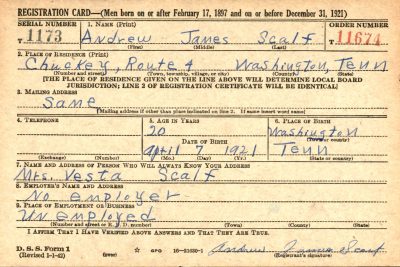 REGISTRATION CARD—(Men born on or after February 17, 1897 and on or before December 31, 1921)
SERIAL NUMBER 1. NAME (Print) ORDER NUMBER
T 1173 Andrew James Scalf T 11674
(First) (Middle) (Last)
2. PLACE OF RESIDENCE (Print)
Chuckey, Route 4 Washington, Tenn
(Number and street) (Town, township, village, or city) (County) (State)
[THE PLACE OF RESIDENCE GIVEN ON THE LINE ABOVE WILL DETERMINE LOCAL BOARD
JURISDICTION; LINE 2 OF REGISTRATION CERTIFICATE WILL BE IDENTICAL]
3. MAILING ADDRESS
Same
[Mailing address if other than place indicated on line 2. If same insert word same]
4. TELEPHONE 5. AGE IN YEARS 6. PLACE OF BIRTH
20 Washington
DATE OF BIRTH (Town or county)
April 7 1921 Tenn
(Exchange) (Number) (Mo.) (Day) (Yr.) (State or country)
7. NAME AND ADDRESS OF PERSON WHO WILL ALWAYS KNOW YOUR ADDRESS
Mrs. Vesta Scalf
8. EMPLOYER'S NAME AND ADDRESS
No employer
9. PLACE OF EMPLOYMENT OR BUSINESS
Unemployed
(Number and street or R. F. D. number) (Town) (County) (State)
I AFFIRM THAT I HAVE VERIFIED ABOVE ANSWERS AND THAT THEY ARE TRUE.
D. S. S. FORM 1 GPO Andrew James Scalf
(Revised 1-1-42) (over) (Registrant's signature)